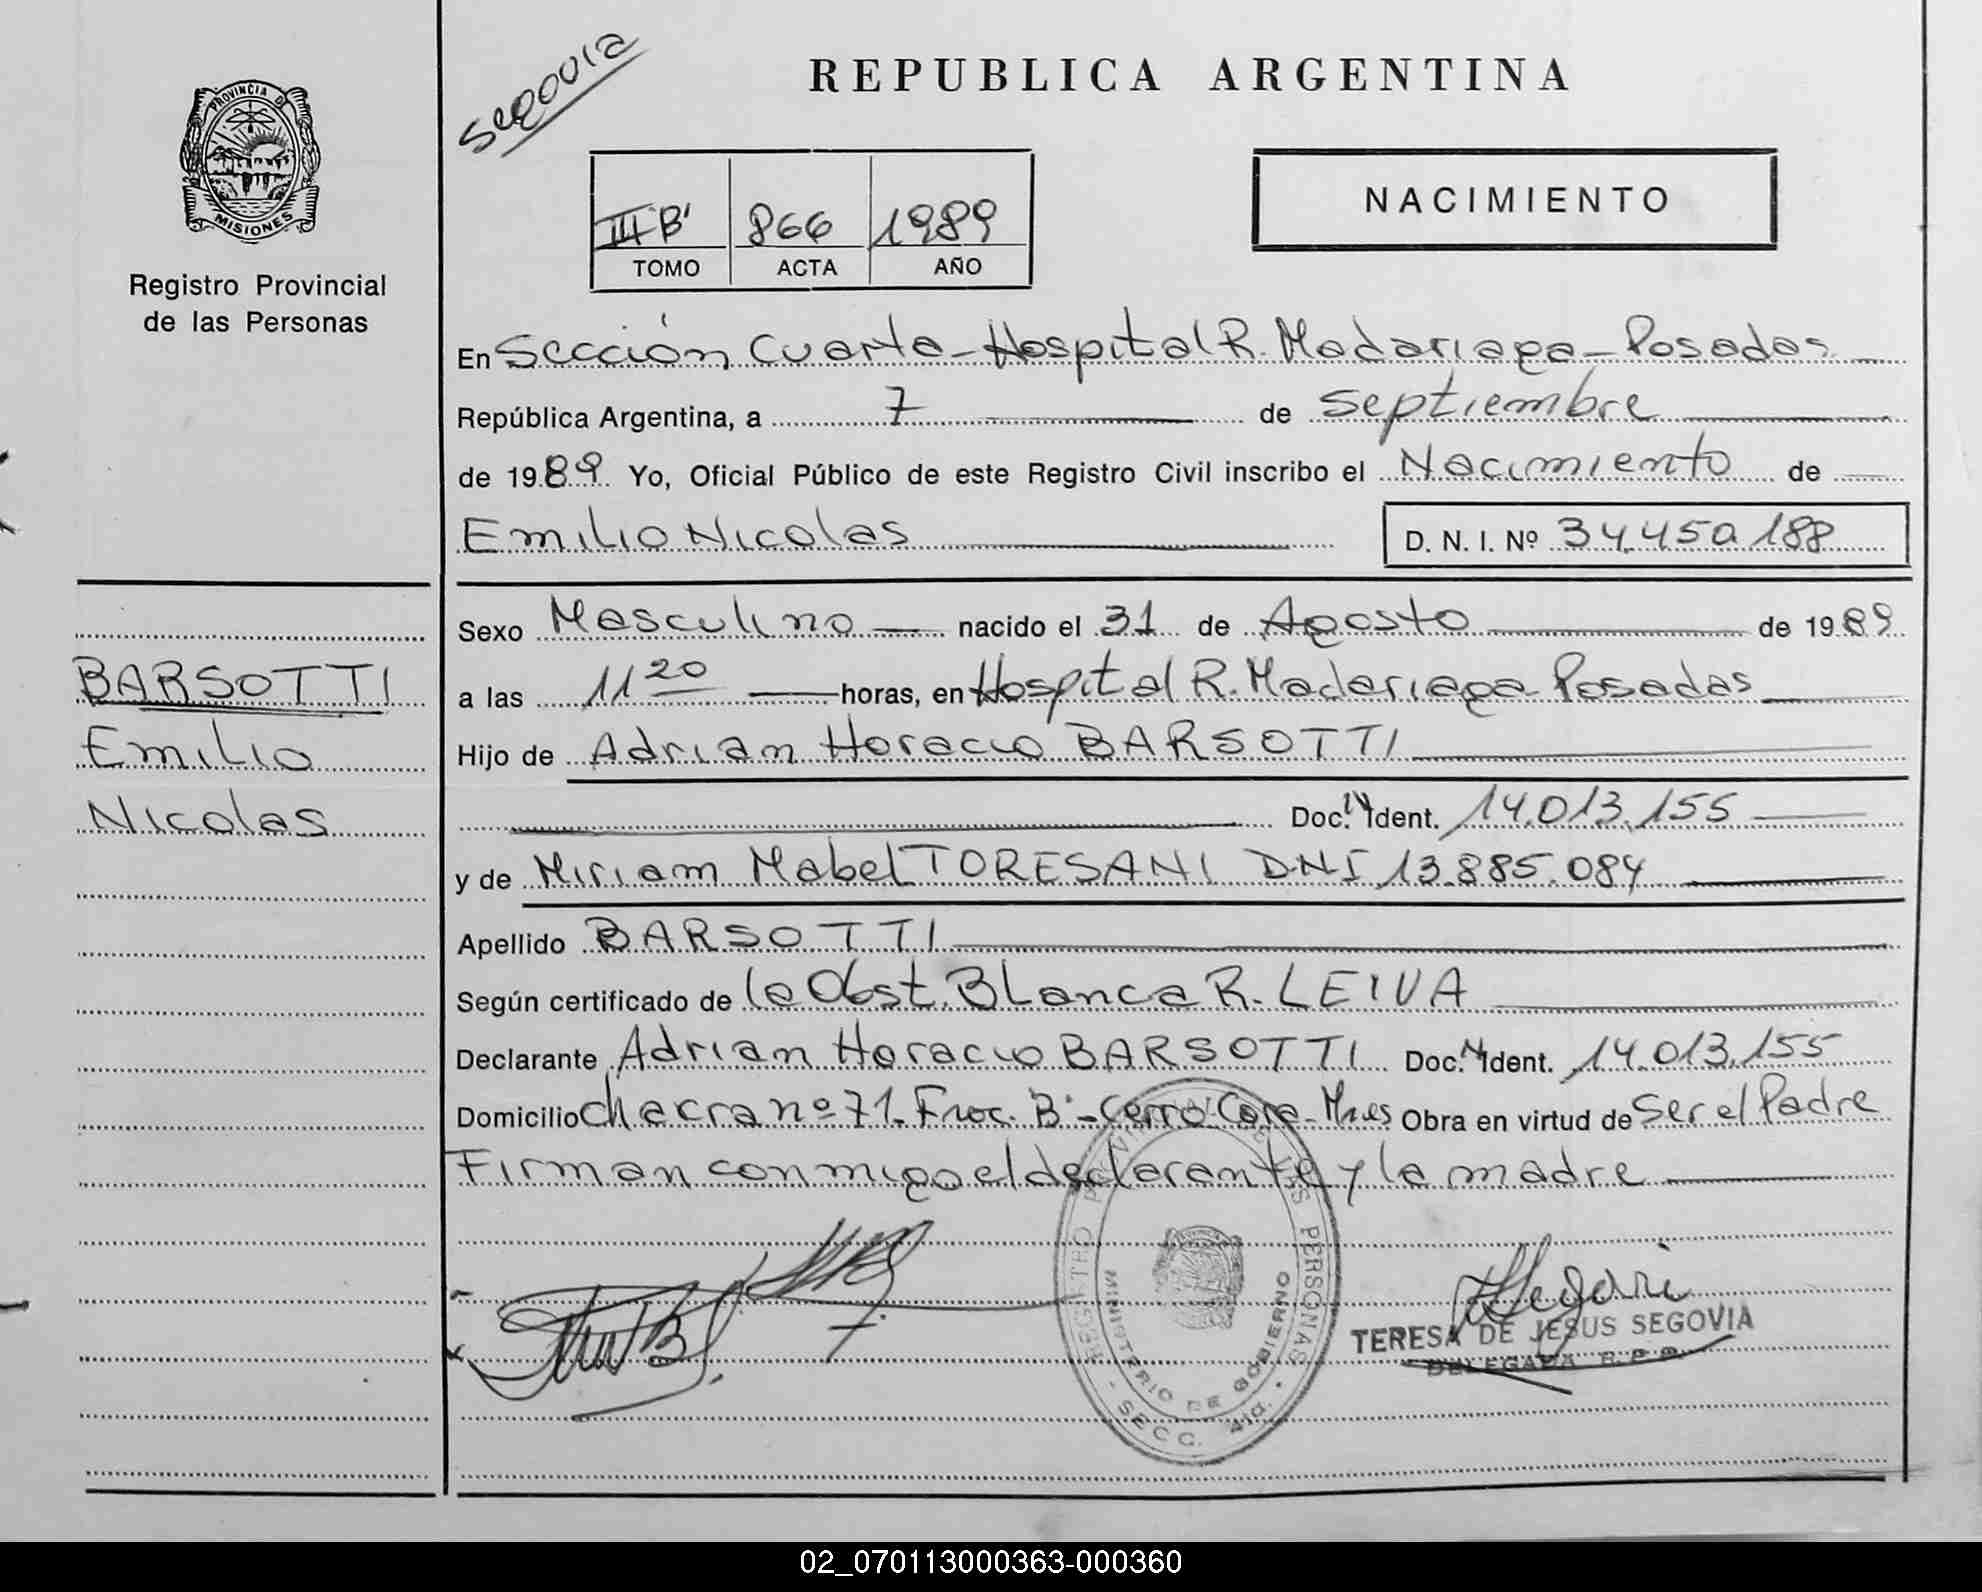 Segovia
REPUBLICA ARGENTINA
PROVINCIA DE
MISIONES
Registro Provincial
de las Personas
NACIMIENTO
III B' 866 1989
TOMO ACTA AÑO
En Sección Cuarta - Hospital R. Madariaga - Posadas
República Argentina, a 7 de septiembre
de 1989 Yo, Oficial Público de este Registro Civil inscribo el Nacimiento de
Emilio Nicolas D. N. I. Nº 34.450.188
Sexo Masculino nacido el 31 de Agosto de 1989
a las 11 20 horas, en Hospital R. Madariaga Posadas
Hijo de Adrian Horacio BARSOTTI
Doc. N Ident. 14.013.155
y de Miriam Mabel TORESANI DNI 13.885.084
Apellido BARSOTTI
Según certificado de la Obst. Blanca R. LEIVA
Declarante Adrian Horacio BARSOTTI Doc. N Ident. 14.013.155
Domicilio chacra nº 71. Frac. B - Cerro Cora - Mnes Obra en virtud de Ser el Padre
Firman conmigo el declarante y la madre
BARSOTTI
Emilio
Nicolas
REGISTRO PROVINCIAL DE LAS PERSONAS
MINISTERIO DE GOBIERNO
- SECC. 4ta. -
TERESA DE JESUS SEGOVIA
DELEGADA R. P. P.
02_070113000363-000360